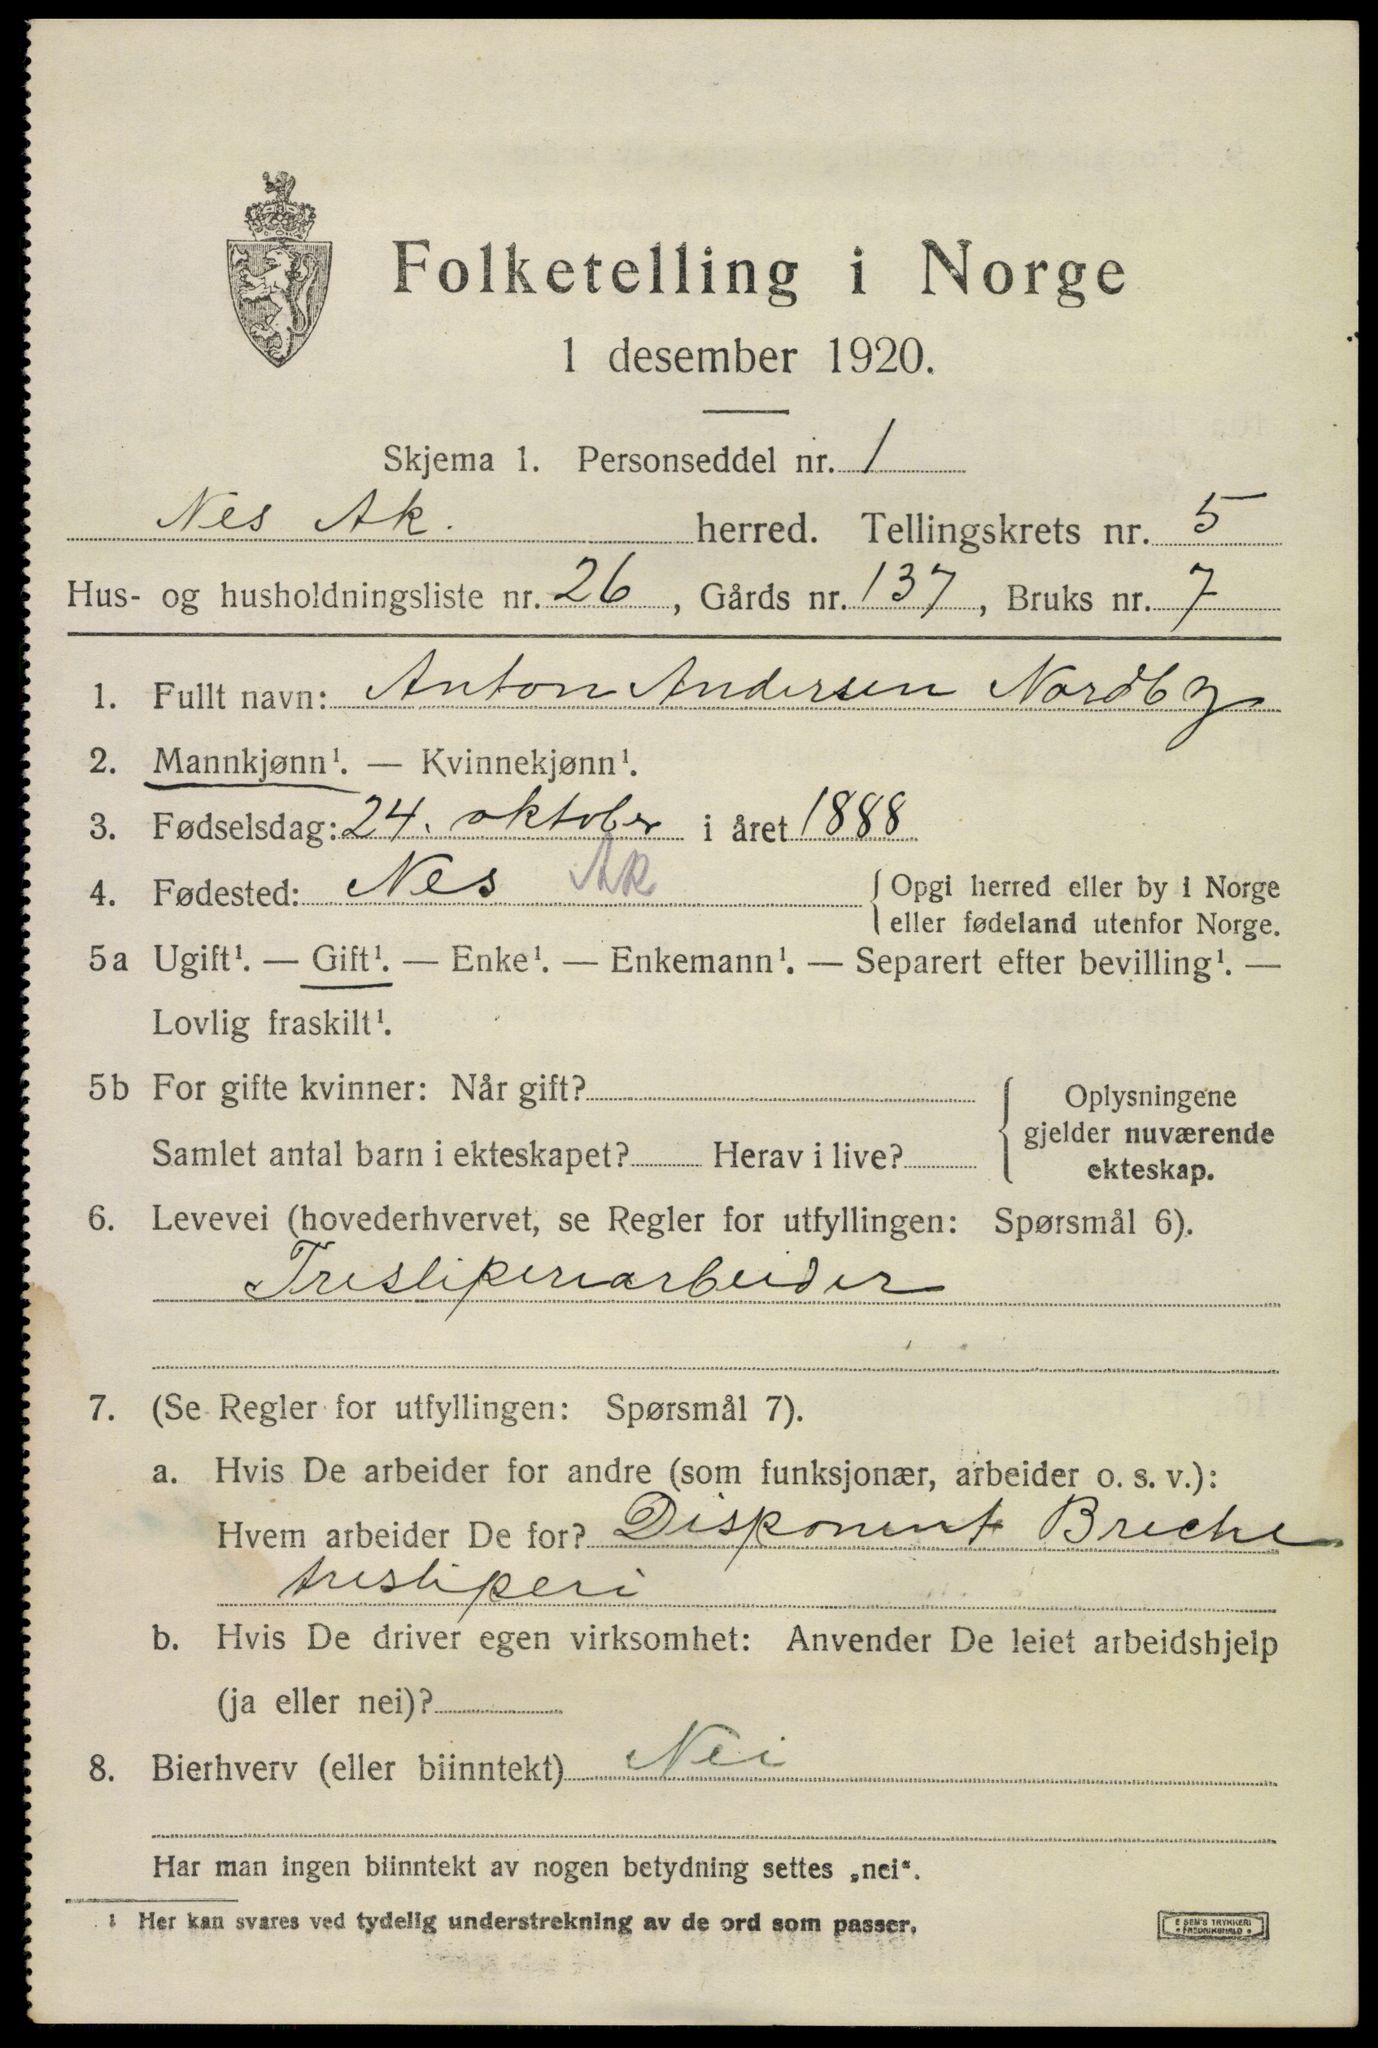 Folketelling i Norge
1 desember 1920.
Skjema 1. Personseddel nr. 1
Nes Ak. herred. Tellingskrets nr. 5
Hus- og husholdningsliste nr. 26, Gårds nr. 137, Bruks nr. 7
1. Fullt navn: Anton Andersen Nordby
2. Mannkjønn¹. — Kvinnekjønn¹.
3. Fødselsdag: 24. oktober i året 1888
4. Fødested: Nes Ak {Opgi herred eller by i Norge
eller fødeland utenfor Norge.
5a Ugift¹. — Gift¹. — Enke¹. — Enkemann¹. — Separert efter bevilling¹. —
Lovlig fraskilt¹.
5b For gifte kvinner: Når gift?
Samlet antal barn i ekteskapet? Herav i live?
Oplysningene
gjelder nuværende
ekteskap.
6. Levevei (hovederhvervet, se Regler for utfyllingen: Spørsmål 6).
Tresliperiarbeider
7. (Se Regler for utfyllingen: Spørsmål 7).
a. Hvis De arbeider for andre (som funksjonær, arbeider o. s. v.):
Hvem arbeider De for? Disponent Breche
tresliperi
b. Hvis De driver egen virksomhet: Anvender De leiet arbeidshjelp
(ja eller nei)?
8. Bierhverv (eller biinntekt) Nei
Har man ingen biinntekt av nogen betydning settes „nei“.
1 Her kan svares ved tydelig understrekning av de ord som passer.
E SEM'S TRYKKERI
• FREDRIKSHALD •